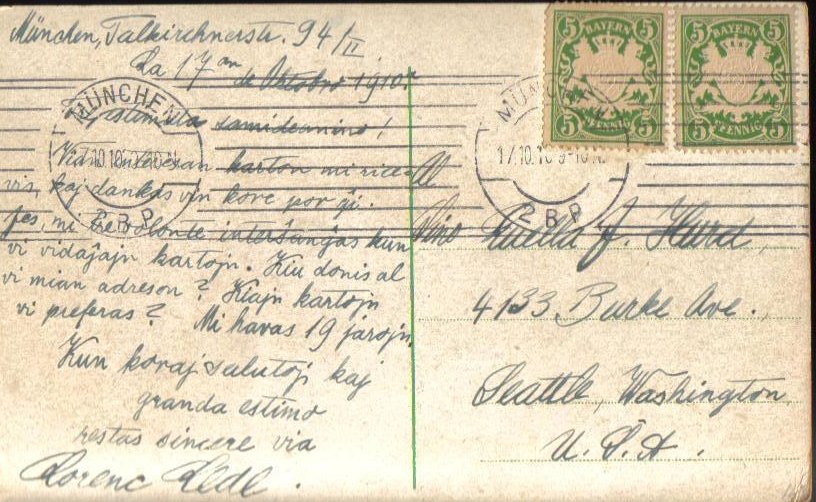 München, Talkirchnerstr. 94/II
La 17an de Oktobro 1910.
Estimata samideanino!
Vian karton mi rice-
vis, kaj dankas vin kore por ĝi.
Jes, mi tre volonte interŝanĝas kun
vi vidaĵajn kartojn. Kiu donis al
vi mian adreson? Kiajn kartojn
vi preferas? Mi havas 19 jarojn.
Kun koraj salutoj kaj
granda estimo
restas sincere via
Lorenc Ledl.
Al
Sino Luella J. Hurd,
4133 Burke Ave.,
Seattle, Washington,
U. S. A.
BAYERN
5 5
PFENNIG
BAYERN
5 5
PFENNIG
MÜNCHEN
17.10.10
2 B P
MÜNCHEN
17.10.10 9-10 N.
2 B P